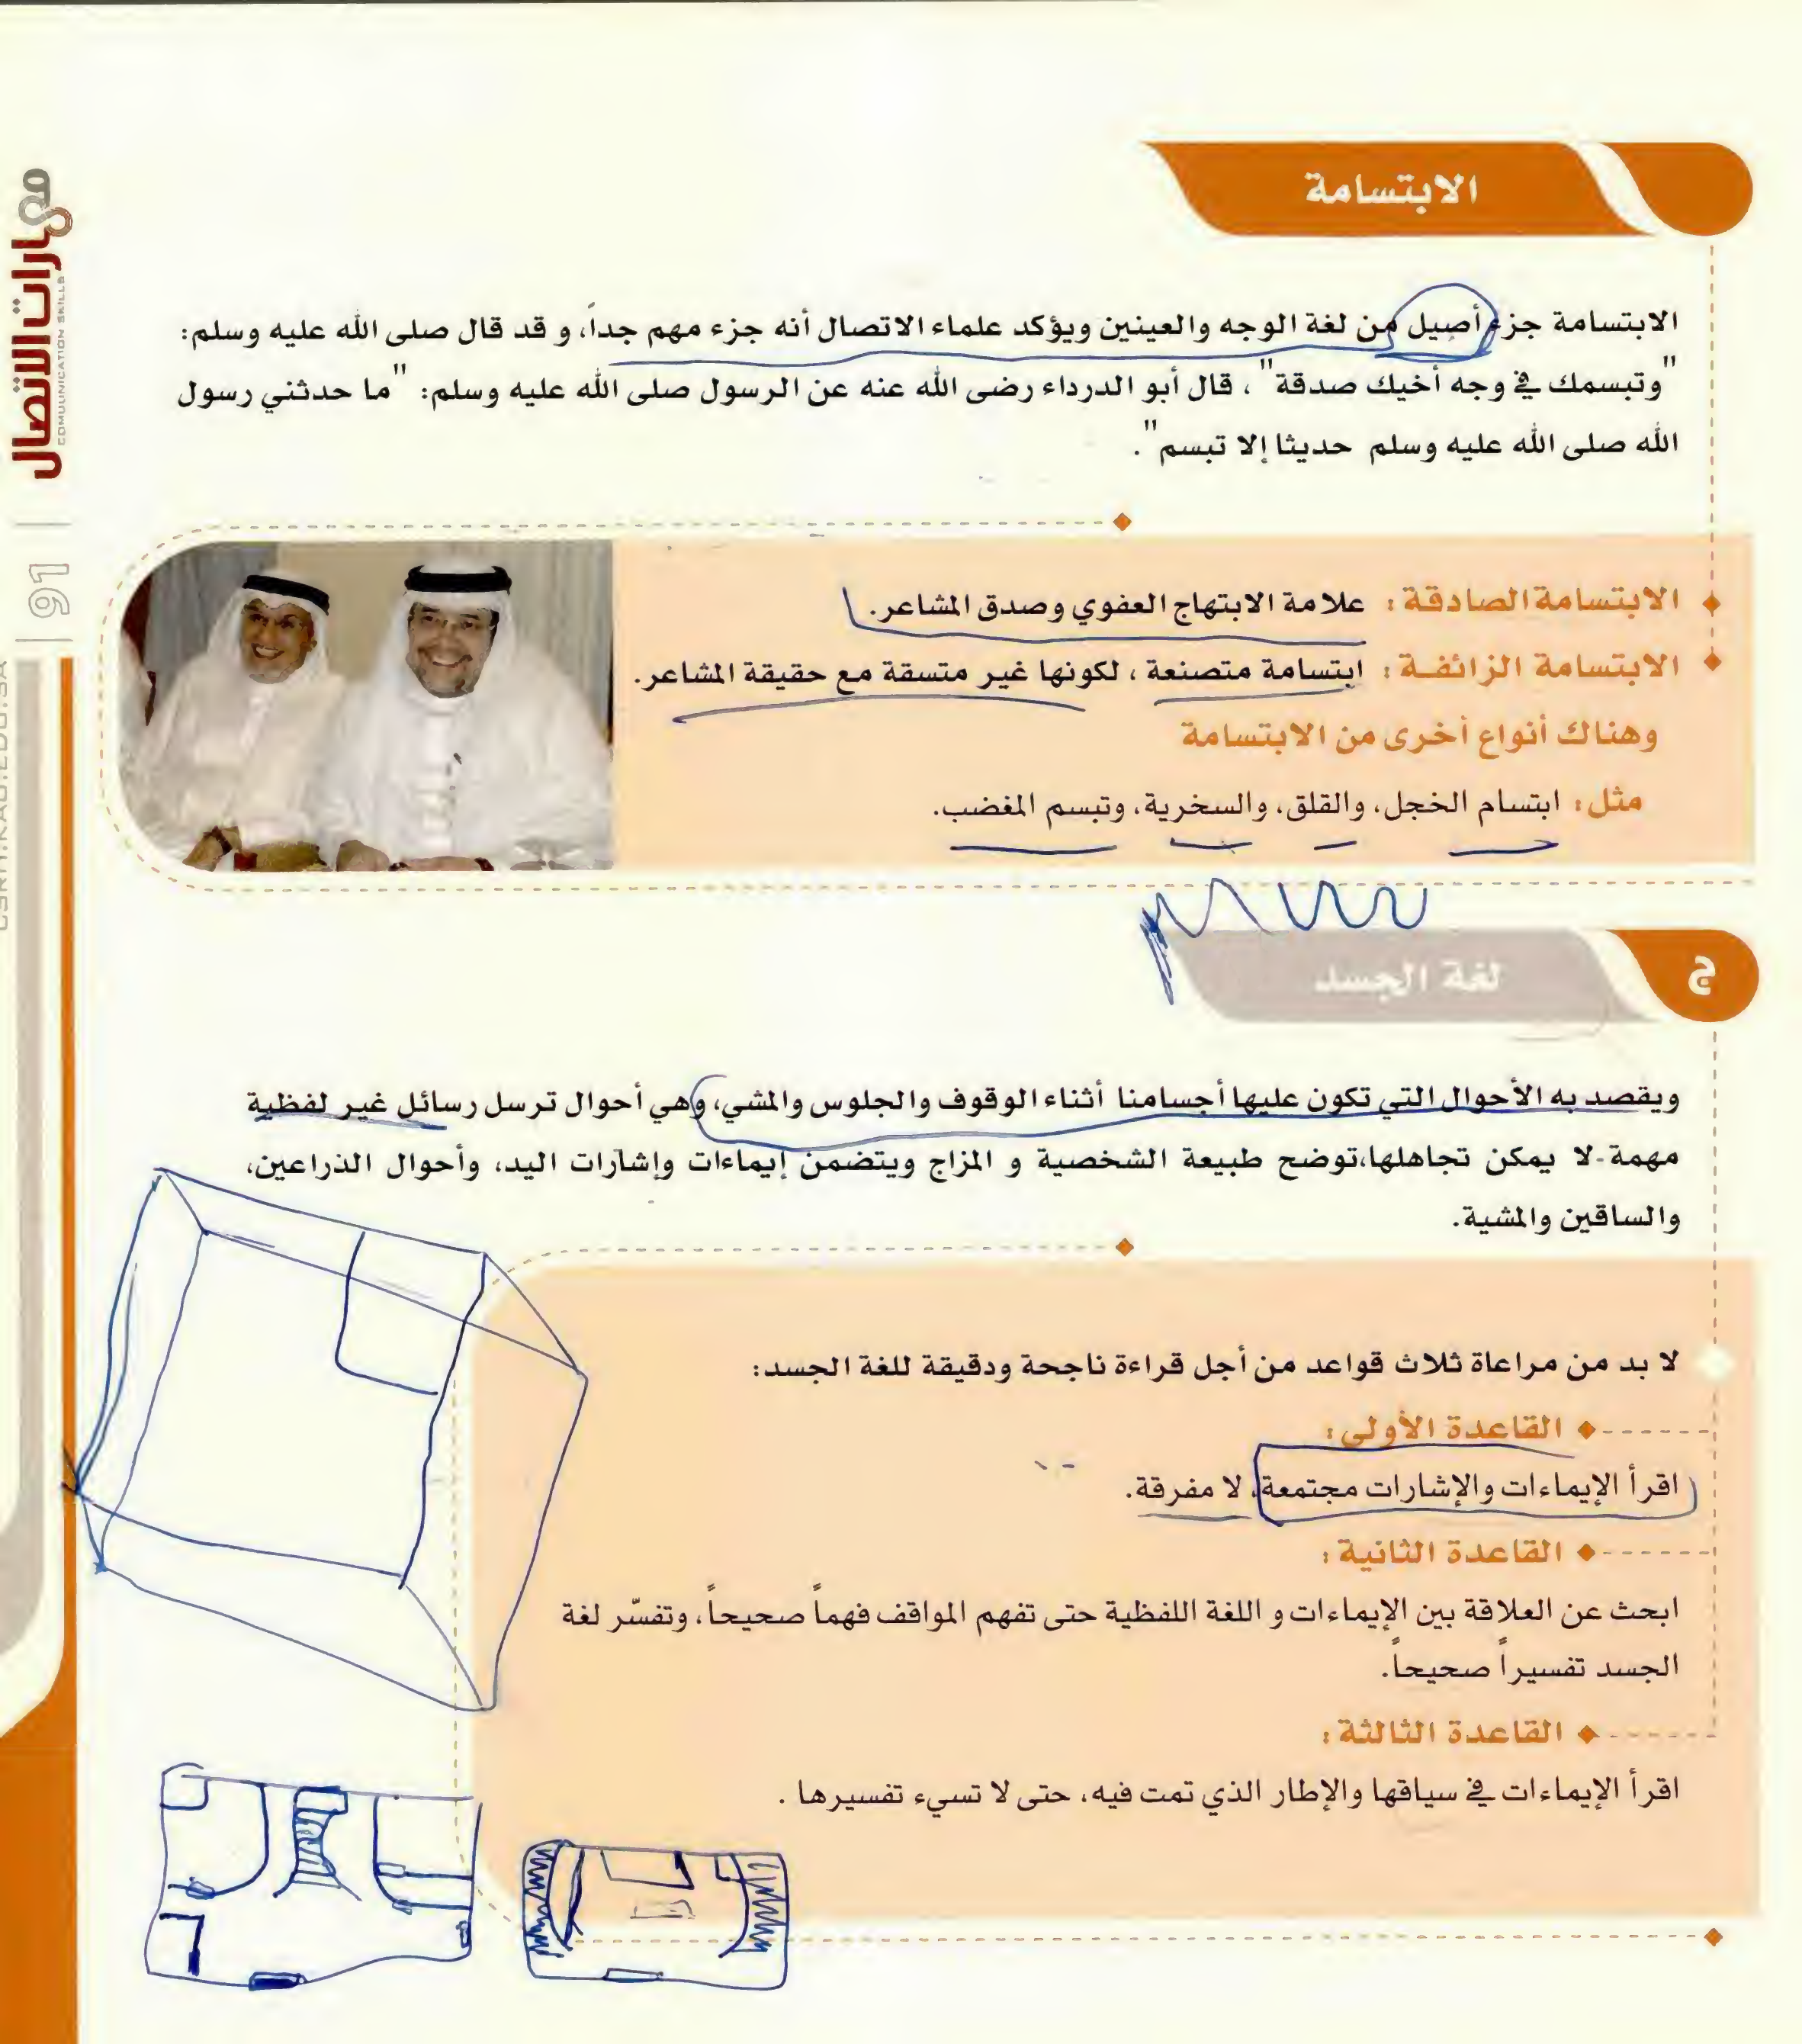 الابتسامة
الابتسامة جزء أصيل من لغة الوجه والعينين ويؤكد علماء الاتصال أنه جزء مهم جداً، و قد قال صلى الله عليه وسلم:
"وتبسمك في وجه أخيك صدقة"، قال أبو الدرداء رضى الله عنه عن الرسول صلى الله عليه وسلم: "ما حدثني رسول
الله صلى الله عليه وسلم حديثا إلا تبسم".
الابتسامة الصادقة: علامة الابتهاج العفوي وصدق المشاعر.
الابتسامة الزائفة: ابتسامة متصنعة، لكونها غير متسقة مع حقيقة المشاعر.
وهناك أنواع أخرى من الابتسامة
مثل: ابتسام الخجل، والقلق، والسخرية، وتبسم المغضب.
ج
لغة الجسد
ويقصد به الأحوال التي تكون عليها أجسامنا أثناء الوقوف والجلوس والمشي، وهي أحوال ترسل رسائل غير لفظية
مهمة-لا يمكن تجاهلها،توضح طبيعة الشخصية و المزاج ويتضمن إيماءات وإشارات اليد، وأحوال الذراعين،
والساقين والمشية.
لا بد من مراعاة ثلاث قواعد من أجل قراءة ناجحة ودقيقة للغة الجسد:
القاعدة الأولى:
اقرأ الإيماءات والإشارات مجتمعة، لا مفرقة.
القاعدة الثانية:
ابحث عن العلاقة بين الإيماءات و اللغة اللفظية حتى تفهم المواقف فهماً صحيحاً، وتفسّر لغة
الجسد تفسيراً صحيحاً.
القاعدة الثالثة:
اقرأ الإيماءات في سياقها والإطار الذي تمت فيه، حتى لا تسيء تفسيرها .
مهارات الاتصال
COMMUNICATION SKILLS
91